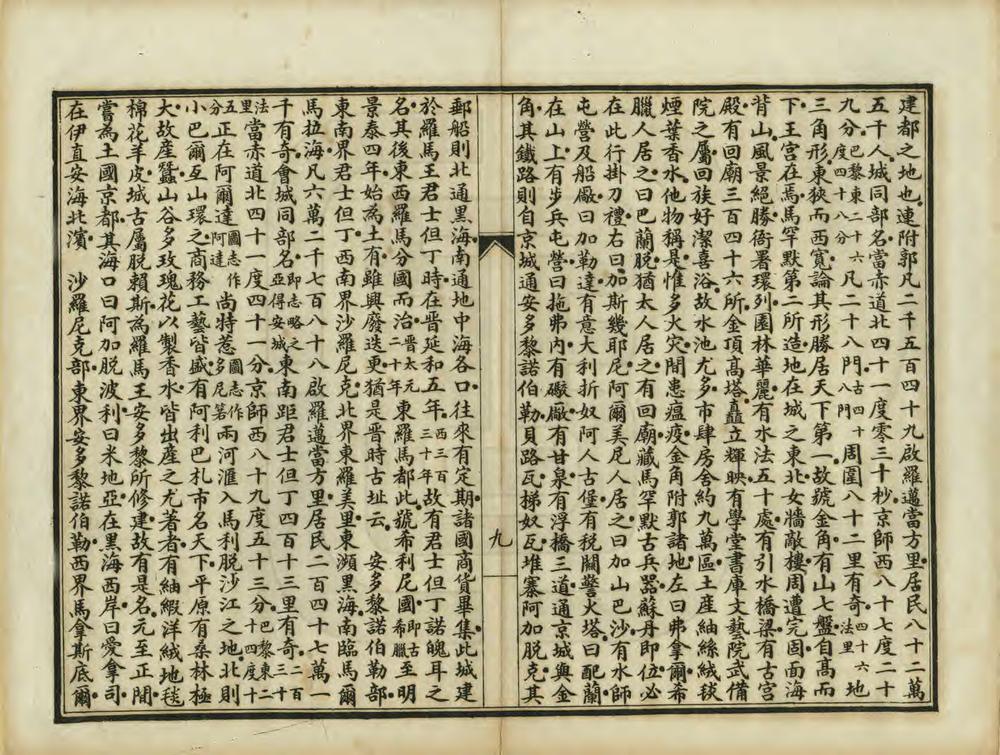 建都之地也連附郭凡二千五百四十九啟羅邁當方里居民八十二萬
五千人城同部名當赤道北四十一度零三十秒京師西八十七度二十
九分巴黎東二十六度四十八分凡二十八門古四十八門周圍八十二里有奇法里四十六地
三角形東狹而西寬論其形勝居天下第一故號金角有山七盤自高而
下王宮在焉馬罕默第二所造地在城之東北女牆敵樓周遭完固面海
背山風景絕勝衙署環列園林華麗有水法五十處有引水橋梁有古宮
殿有回廟三百四十六所金頂高塔矗立輝映有學堂書庫文藝院武備
院之屬回族好潔喜浴故水池尤多市肆房舍約九萬區土產紬絲絨毯
煙葉香水他物稱是惟多火災間患瘟疫金角附郭諸地左曰弗拿爾希
臘人居之曰巴蘭脫猶太人居之有回廟藏馬罕默古兵器蘇丹即位必
在此行掛刀禮右曰加斯幾耶尼阿爾美尼人居之曰加山巴沙有水師
屯營及船廠曰加勒達有意大利折奴阿人古堡有税關警火塔曰配蘭
在山上有步兵屯營曰拖弗內有礮廠有甘泉有浮橋三道通京城與金
角其鐵路則自京城通安多黎諾伯勒貝路瓦梯奴瓦堆寨阿加脫克其
九
郵船則北通黑海南通地中海各口往來有定期諸國商貨畢集此城建
於羅馬王君士但丁時在晉延和五年西三百三十年故有君士但丁諾魄耳之
名其後東西羅馬分國而治晉太元二十年東羅馬都此號希利尼國即古希臘至明
景泰四年始為土有雖興廢迭更猶是晉時古址云　安多黎諾伯勒部
東南界君士但丁西南界沙羅尼克北界東羅美里東瀕黑海南臨馬爾
馬拉海凡六萬二千七百八十八啟羅邁當方里居民二百四十七萬一
千有奇會城同部名即志略之亞得安城東南距君士但丁四百十三里有奇二百三十
法里當赤道北四十一度四十一分京師西八十九度五十三分巴黎東二十四度十
五分正在阿爾達圖志作阿達尚特惹圖志作多尼若兩河滙入馬利脫沙江之地北則
小巴爾亙山環之商務工藝皆盛有阿利巴札市名天下平原有桑林極
大故產蠶山谷多玫瑰花以製香水皆出產之尤著者有紬緞洋絨地毯
棉花羊皮城古屬脫賴斯為羅馬王安多黎所修建故有是名元至正間
嘗為土國京都其海口曰阿加脫波利曰米地亞在黑海西岸曰愛拿司
在伊直安海北濱　沙羅尼克部東界安多黎諾伯勒西界馬拿斯底爾